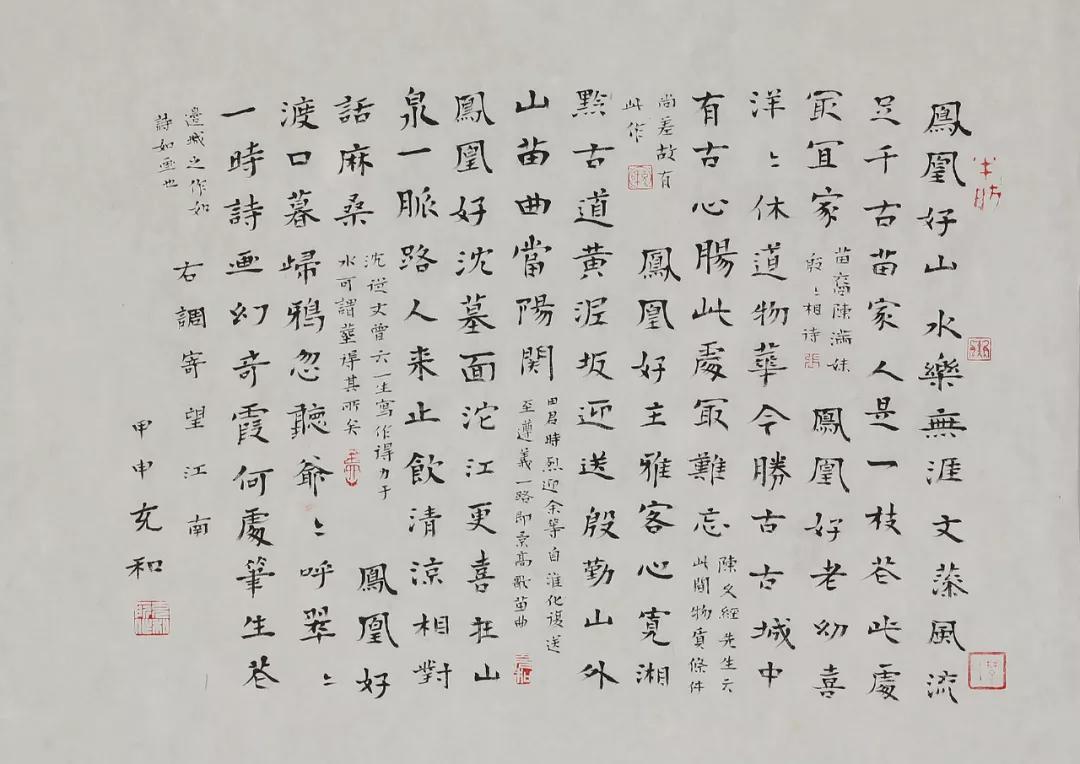 鳳凰好山水樂無涯文藻風流
足千古苗家人是一枝花此處
㝡宜家
苗裔陳滿妹
殷〻相待
鳳凰好老幼喜
洋〻休道物華今勝古古城中
有古心腸此處㝡難忘
陳文經先生云
此間物質條件
尚差故有
此作
鳳凰好主雅客心寬湘
黔古道黃泥坂迎送殷勤山外
山苗曲當陽関
田君時烈迎余等自淮化復送
至遵義一路即景高歌苗曲
鳳凰好沈墓面沱江更喜在山
泉一脈路人来止飲清涼相對
話麻桑
沈從文曾云一生寫作得力于
水可謂葬得其所矣
鳳凰好
渡口暮歸鴉忽聽爺〻呼翠〻
一時詩画幻奇霞何處筆生花
邊城之作如
詩如画也
右調寄望江南
甲申充和